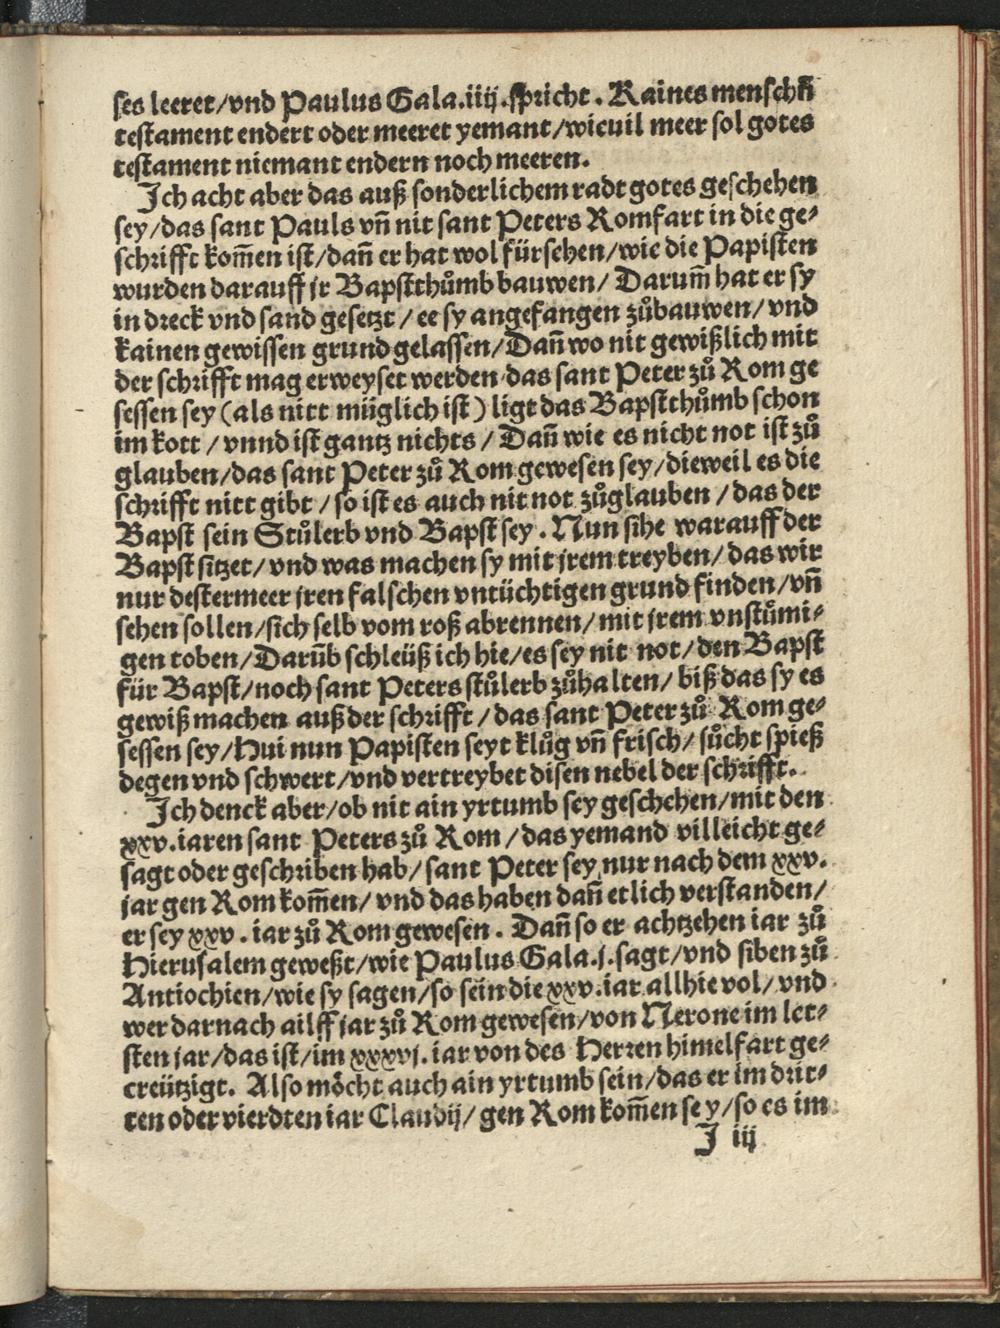 ſes leeret/vnd Paulus Gala.iiij.ſpricht. Kaines menſchñ
teſtament endert oder meeret yemant/wieuil meer ſol gotes
teſtament niemant endern noch meeren.
Jch acht aber das auß ſonderlichem radt gotes geſchehen
ſey/das ſant Pauls vñ nit ſant Peters Romfart in die ge⸗
ſchrifft kom̃en iſt/dañ er hat wol fürſehen/wie die Papiſten
wurden darauff jr Bapſtthůmb bauwen/ Darum̃ hat er ſy
in dreck vnd ſand geſetzt/ee ſy angefangen zůbauwen/vnd
kainen gewiſſen grund gelaſſen/Dañ wo nit gewißlich mit
der ſchrifft mag erweyſet werden das ſant Peter zů Rom ge
ſeſſen ſey (als nitt müglich iſt) ligt das Bapſtthůmb ſchon
im kott/vnnd iſt gantz nichts/Dañ wie es nicht not iſt zů
glauben/das ſant Peter zů Rom geweſen ſey/dieweil es die
ſchrifft nitt gibt/ſo iſt es auch nit not zůglauben/das der
Bapſt ſein Stůlerb vnd Bapſt ſey. Nun ſihe warauff der
Bapſt ſitzet/vnd was machen ſy mit jrem treyben/das wir
nur deſtermeer jren falſchen vntüchtigen grund finden/vñ
ſehen ſollen/ſich ſelb vom roß abrennen/mit jrem vnſtůmi⸗
gen toben/Darũb ſchleüß ich hie/es ſey nit not/den Bapſt
für Bapſt/noch ſant Peters ſtůlerb zůhalten/biß das ſy es
gewiß machen auß der ſchrifft/das ſant Peter zů Rom ge⸗
ſeſſen ſey/Hui nun Papiſten ſeyt klůg vñ friſch/ſůcht ſpieß
degen vnd ſchwert/vnd vertreybet diſen nebel der ſchrifft.
Jch denck aber/ob nit ain yrtumb ſey geſchehen/mit den
xxv.iaren ſant Peters zů Rom/das yemand villeicht ge⸗
ſagt oder geſchriben hab/ſant Peter ſey nur nach dem xxv.
jar gen Rom kom̃en/vnd das haben dañ etlich verſtanden/
er ſey xxv.iar zů Rom geweſen. Dañ ſo er achtzehen iar zů
Hieruſalem geweßt/wie Paulus Gala.j.ſagt/vnd ſiben zů
Antiochien/wie ſy ſagen/ſo ſein die xxv.iar allhie vol/vnd
wer darnach ailff jar zů Rom geweſen/von Nerone im let⸗
ſten jar/das iſt/im xxxvj.iar von des Herren himelfart ge⸗
creützigt. Alſo möcht auch ain yrtumb ſein/das er im drit⸗
ten oder vierdten iar Claudij/gen Rom kom̃en ſey/ſo es im
J iij